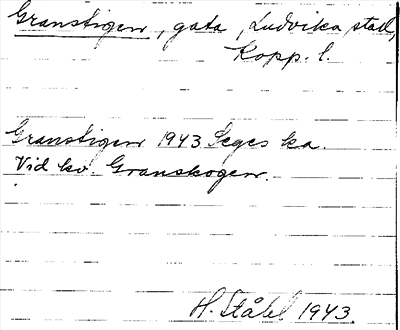 Granstigen, gata, Ludvika stad,
Kopp. l.
Granstigen 1943 Seges ka.
Vid kv. Granskogen.
H. Ståhl 1943.